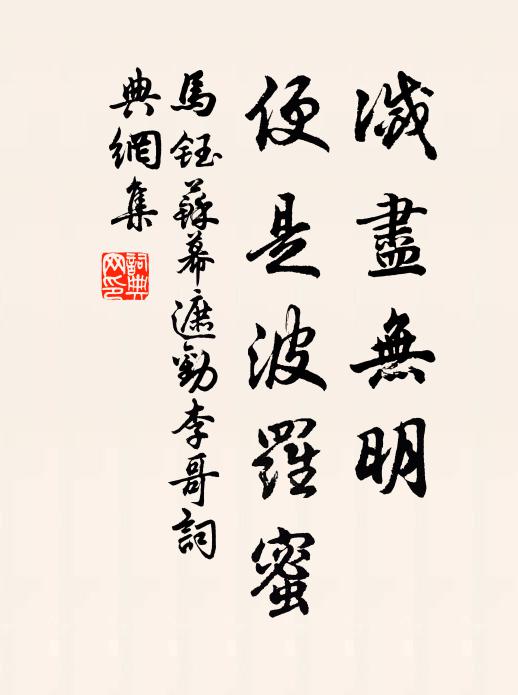 滅盡無明
便是波羅蜜
馬鈺蘇幕遮勸李哥詞
典網集
詞典
网印